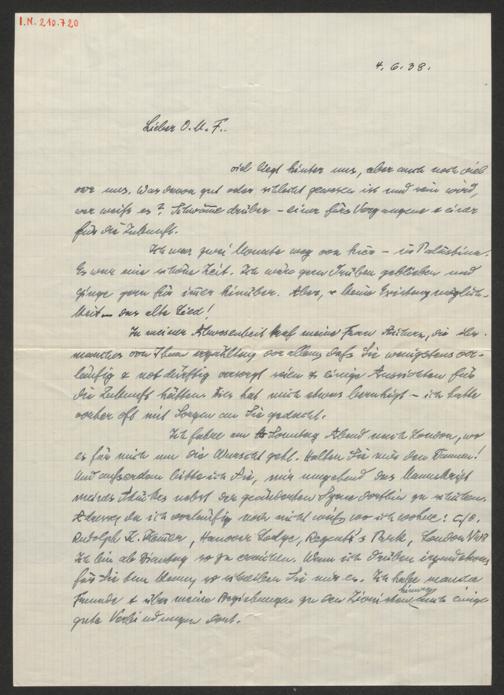 I.N. 210.720
4.6.38.
Lieber O.M.F.
viel liegt hinter uns, aber auch noch viel
vor uns. Was davon gut oder schlecht gewesen ist und sein wird,
wer weiß es? Schwamm drüber – einer fürs Vergangene & einer
für die Zukunft.
Ich war zwei Monate weg von hier – in Palästina.
Es war eine schöne Zeit. Ich wäre gern drüben geblieben und
ginge gern für immer hinüber. Aber, keine
– das alte Lied!
In meiner Abwesenheit traf meine Frau die
manches von Ihnen erzählte vor allem, daß Sie wenigstens vor-
läufig & notdürftig versorgt seien & einige Aussichten für
die Zukunft hätten. Dies hat mich etwas beruhigt – ich hatte
vorher oft mit Sorgen an Sie gedacht.
Ich fahre am Sonntag Abend nach London, wo
es für mich um die Wurscht geht. Halten Sie mir den Daumen!
Und außerdem bitte ich Sie, mir umgehend das Manuskript
meines Stückes nebst der dorthin zu schicken.
Adresse, da ich vorläufig noch nicht weiß wo ich wohne: c/o.
Rudolph K. Hanover Lodge, Regent's Park, London
Ich bin ab Dienstag so zu erreichen. Wenn ich drüben irgendetwas
für Sie kann, so schreiben Sie mir es. Ich habe manche
Freunde & über meine Beziehungen zu den Zionisten hinweg auch einige
gute Verbindungen dort.